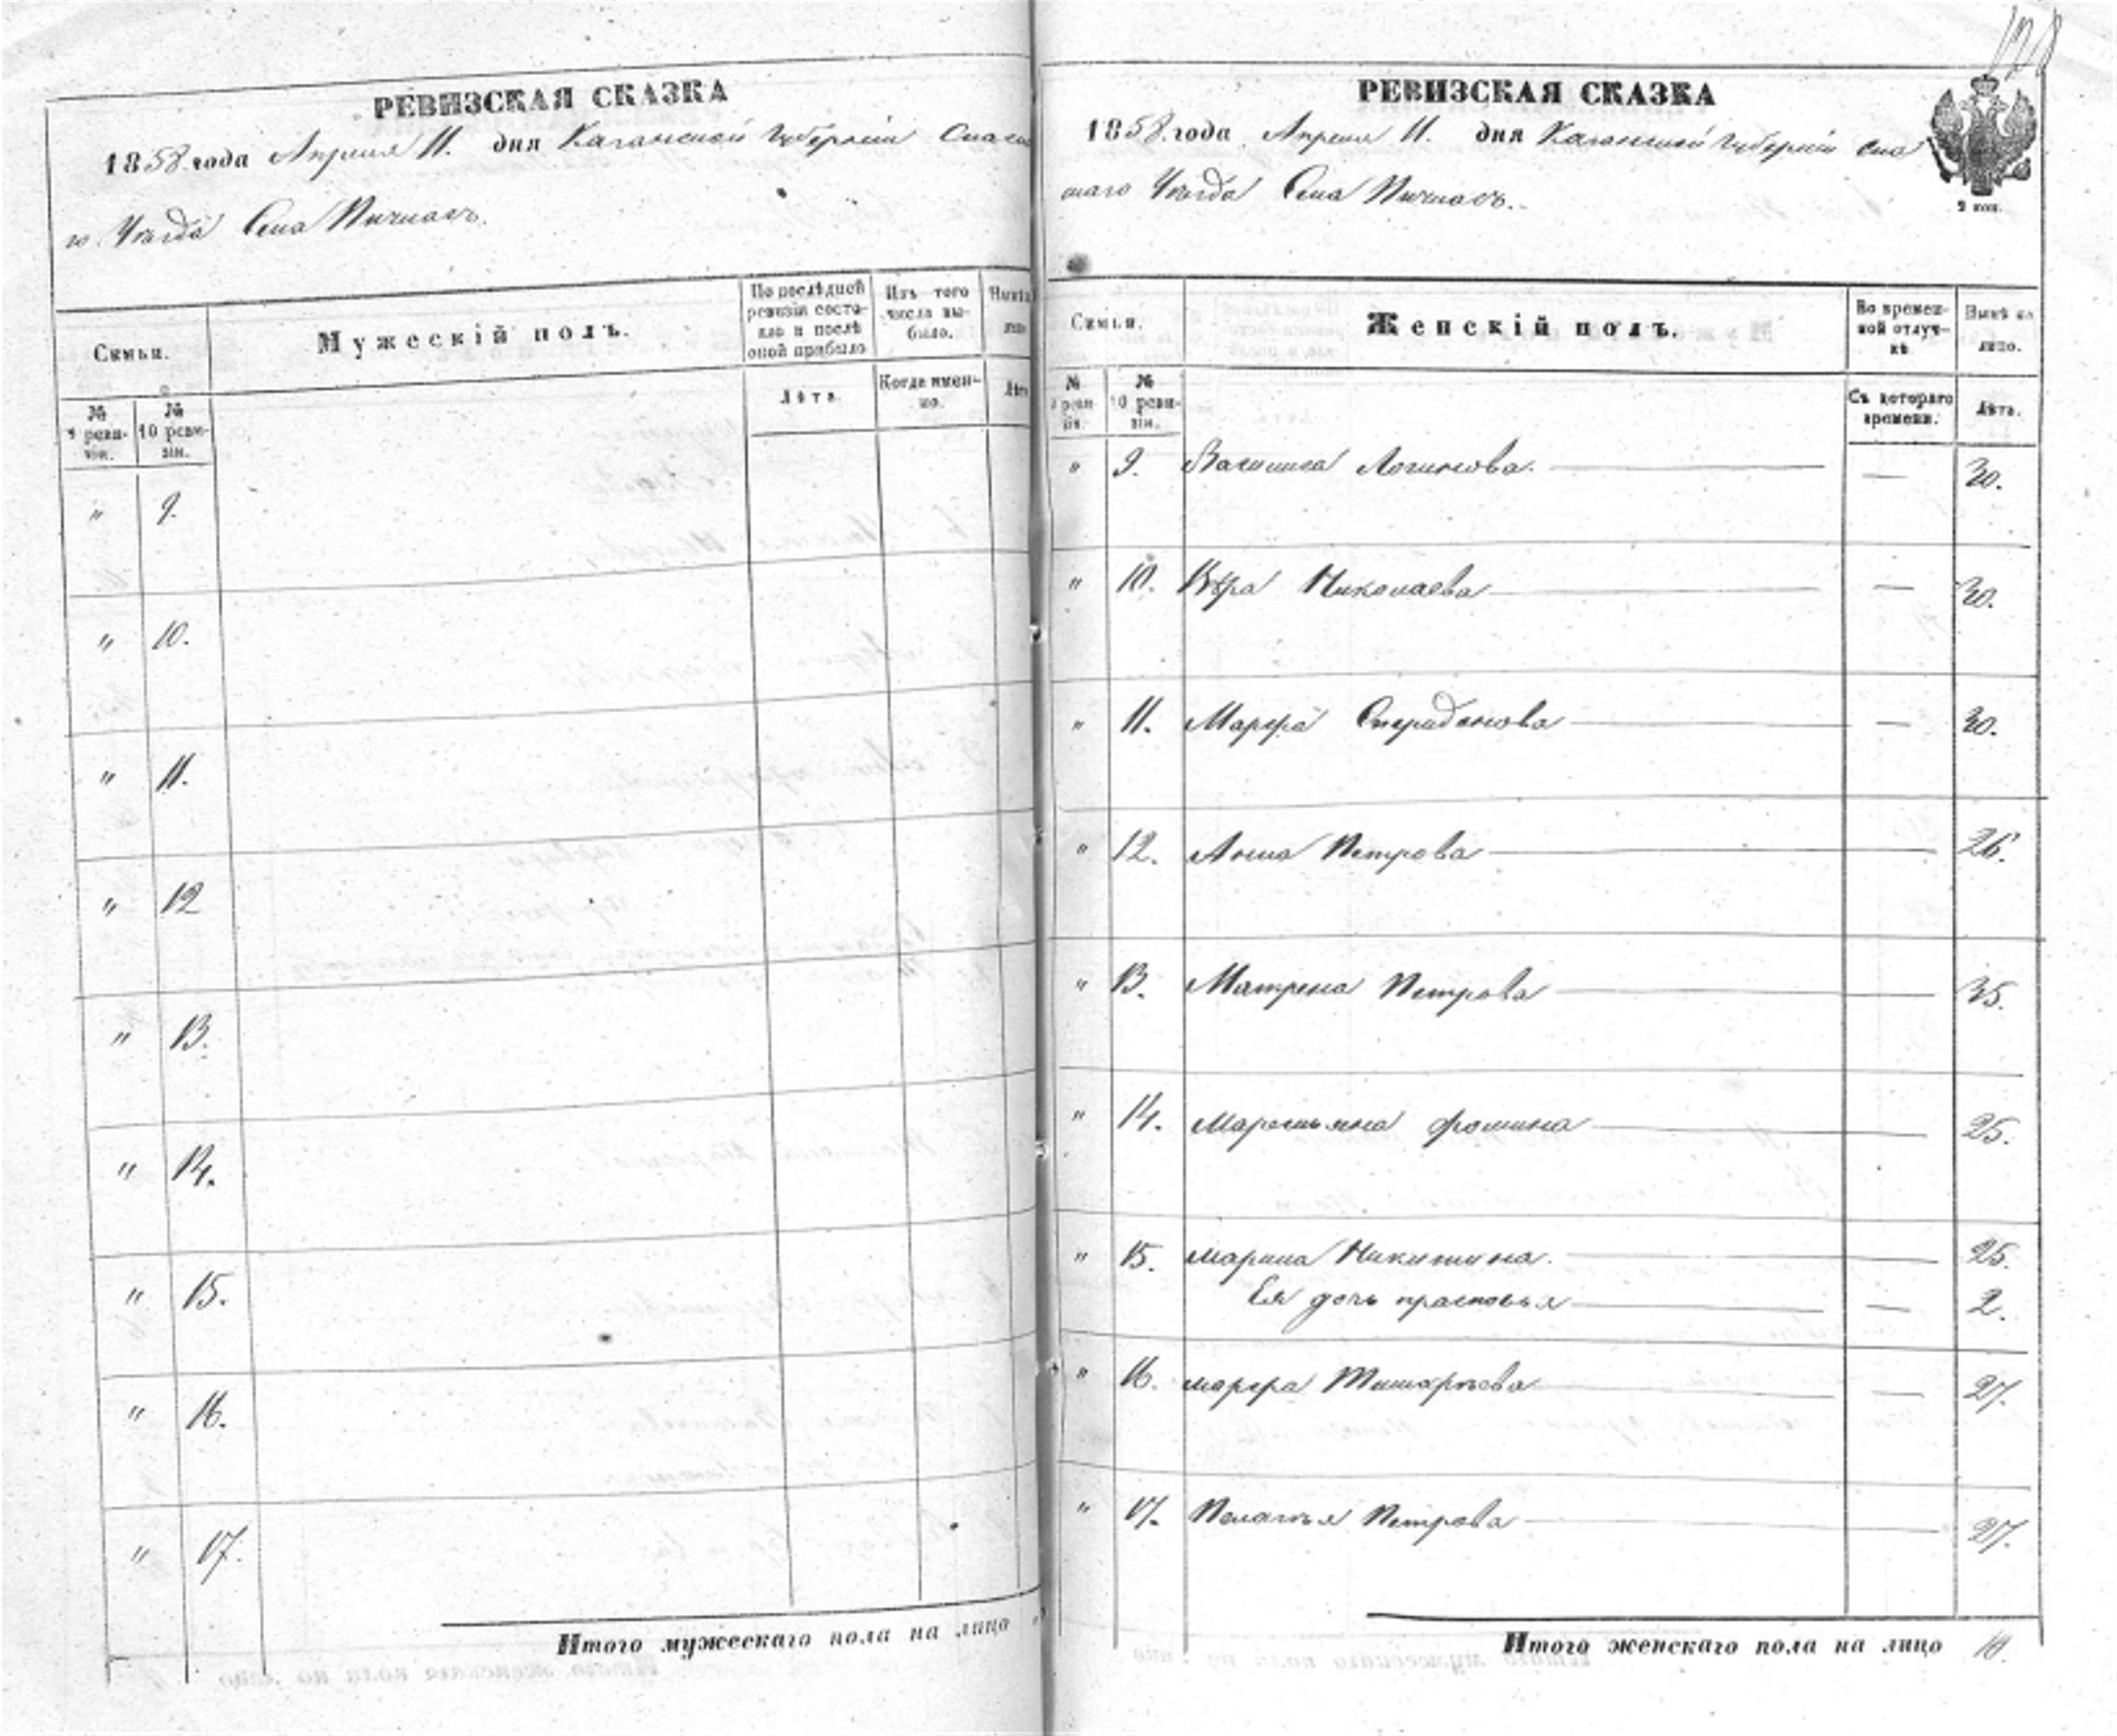 РЕВИЗСКАЯ СКАЗКА
1858 года Апреля 11. дня Казанской Губерніи Спасс
го Уѣзда Села
Семьи.
Мужескій полъ.
По послѣдней ревизіи состояло и послѣ оной прибыло
Изъ того числа выбыло.
№ 9 ревизіи.
№ 10 ревизіи.
Лѣта.
Когда именно.
" 9.
" 10.
" 11.
" 12
" 13.
" 14.
" 15.
" 16.
" 17.
Итого мужескаго пола на лицо "
128
РЕВИЗСКАЯ СКАЗКА
1858 года Апреля 11. дня Казанской Губерніи Спа
скаго Уѣзда Села
9 коп.
Семьи.
Женскій полъ.
Во временной отлучкѣ.
Нынѣ на лицо.
№ 9 ревизіи.
№ 10 ревизіи.
Съ котораго времени.
Лѣта.
" 9. Василиса Логинова. — 30.
" 10. Вѣра Николаева — 30.
" 11. Марфа Спиридонова — 30.
" 12. Анна Петрова 26.
" 13. Матрена Петрова 35.
" 14. Маремьяна Фомина 25.
" 15. Марина Никитина. 25.
Ея дочь прасковья — 2.
" 16. марфа — 27.
" 17. Пелагья Петрова 27.
Итого женскаго пола на лицо 10.